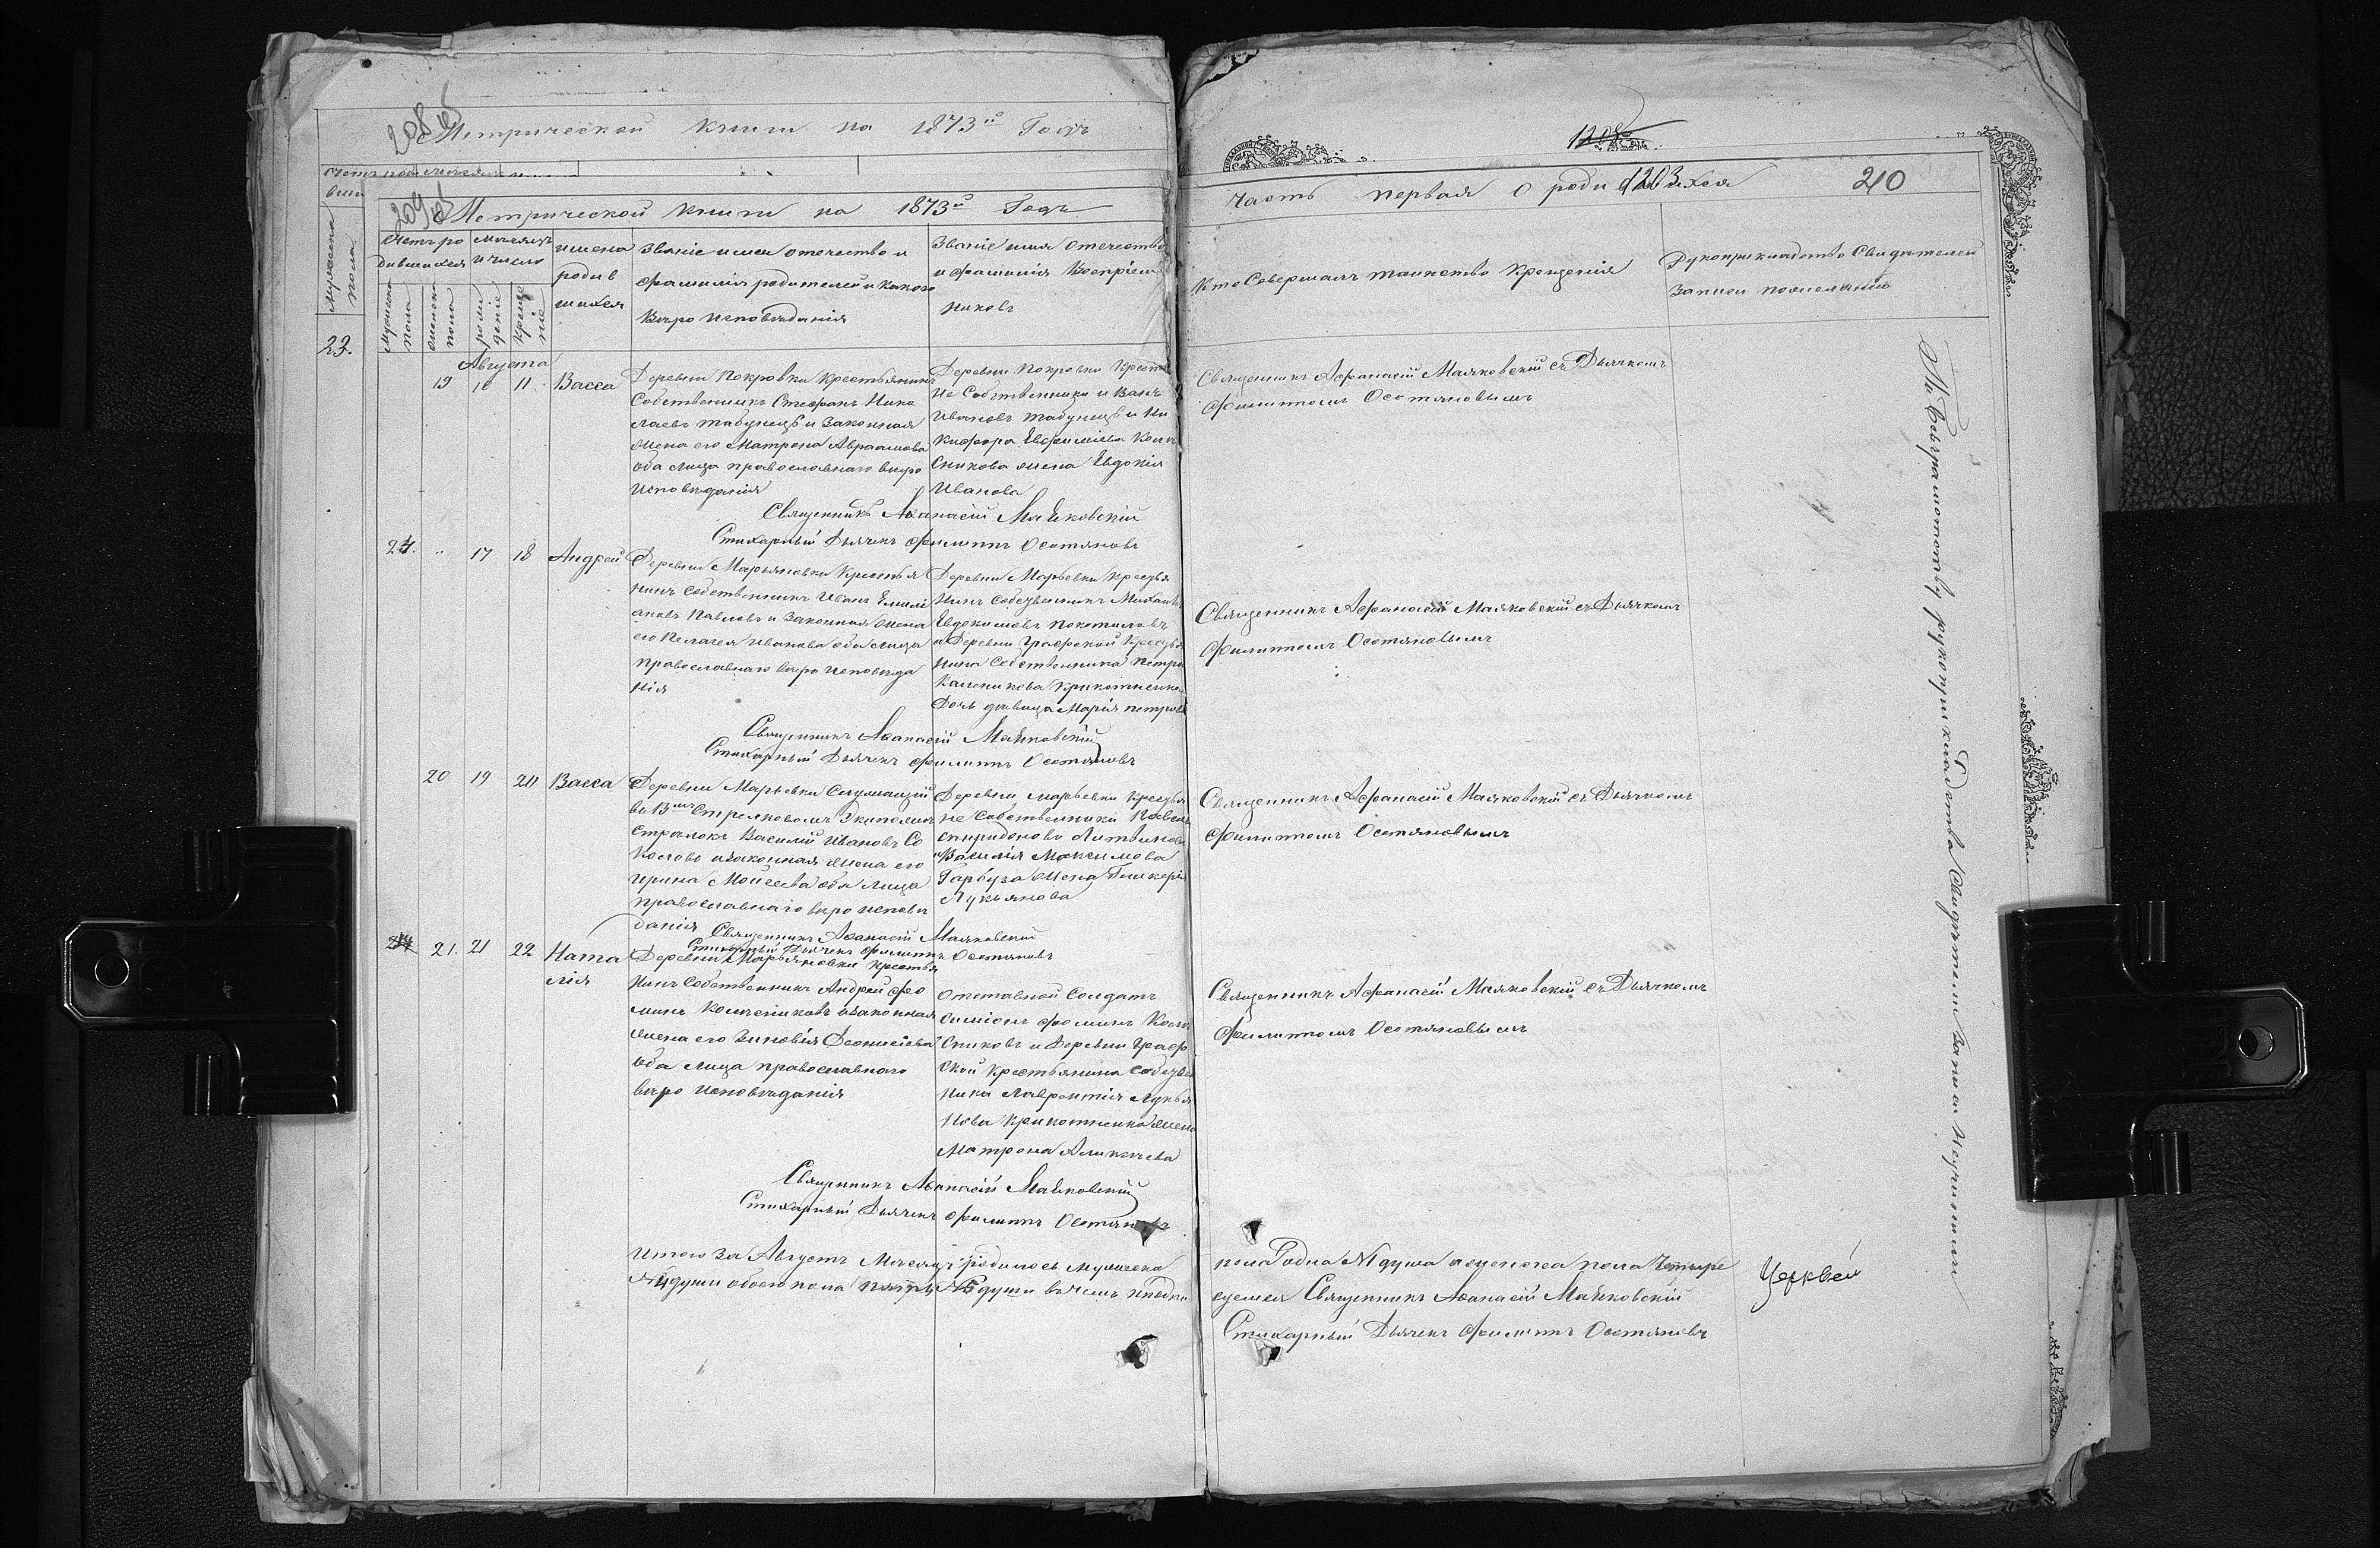 208
Метрической книги на 1873й Годъ
23.
209
Метрической книги на 1873й Годъ
Счетъ ро
дившихся
Мѣсяцъ
и число
имена
родив
шихся
Званіе имя отечество и
фамилія родителей и какого
Вѣро исповѣданія
Званіе имя отечество
и фамилія Воспріем
никовъ
мужеска
пола
женска
пола
рож
деніе
креще
ніе
Августа
19 10 11 Васса
Деревни Покровки Крестьянинъ
Собственникъ Стефанъ Нико
лаевъ Табунецъ и Законная
жена его Матрона Авраамова
оба лица православнаго вѣро
исповѣданія
Деревни Покровки Крестья
не Собственники Иванъ
Ивановъ Табунецъ и Ни
кифора Евфиміева
жена Евдокія
Иванова
Священникъ Аѳанасій Маяковскій
Стихарный Дьячекъ Филиппъ Осотяновъ
24. 17 18 Андрей
Деревни Марьяновки Крестья
нинъ Собственникъ Иванъ Емилі
ановъ Павловъ и Законная жена
его Пелагея Иванова оба лица
Православнаго вѣро исповѣда
нія
Деревни Марьевки Крестья
нинъ Собственникъ Михаилъ
Евдокимовъ Покотиловъ
и Деревни Графской Крестья
нина Собственника Петра
Дочь дѣвица Марія Петрова
Священникъ Аѳанасій Маяковскій
Стихарный Дьячекъ Филиппъ Осотяновъ
20 19 20 Васса
Деревни Марьевки Служащій
въ Стрелковомъ
Стрелокъ Василій Ивановъ Со
коловъ и Законная жена его
Ирина Моисеева оба лица
православнаго вѣро исповѣ
данія
Деревни Марьевки Крестья
не Собственники
Спиридоновъ Литвиновъ
и Василія Максимова
Гарбуза жена Гликерія
Лукьянова
Священникъ Аѳанасій Маяковскій
Стихарный Дьячекъ Филиппъ Осотяновъ
21. 21 22 Ната
лія
Деревни Марьяновки Крестья
нинъ Собственникъ Андрей Фо
минъ и Законная
жена его Зиновія Деонисіева
Оба лица православнаго
вѣро исповѣданія
Отставной Солдатъ
Симіонъ Фоминъ
и Деревни Граф
ской Крестьянина Собствен
ника Лаврентія Лукья
нова жена
Матрона
Священникъ Аѳанасій Маяковскій
Стихарный Дьячекъ Филиппъ Осотяновъ
Итого За Августъ Мѣсяцъ родилось Мужеска
души обоего пола пять 5 души въ чемъ и подпи
1203
210
Часть первая О родившихся
Кто Совершалъ таинство Крещенія
Рукоприкладство Свидѣтелей
Записи пожеланію
Священникъ Афанасій Маяковскій съ Дьячкомъ
Филиппомъ Осотяновымъ
Священникъ Афанасій Маяковскій съ Дьячкомъ
Филиппомъ Осотяновымъ
Священникъ Афанасій Маяковскій съ Дьячкомъ
Филиппомъ Осотяновымъ
Священникъ Афанасій Маяковскій съ Дьячкомъ
Филиппомъ Осотяновымъ
пола одна №1 душа а женска пола Четыре
емся Священникъ Аѳанасій Маяковскій
Стихарный Дьячекъ Филиппъ Осотяновъ
По Безграмотству рукоприкладства Свидѣтели Записи Неучинили